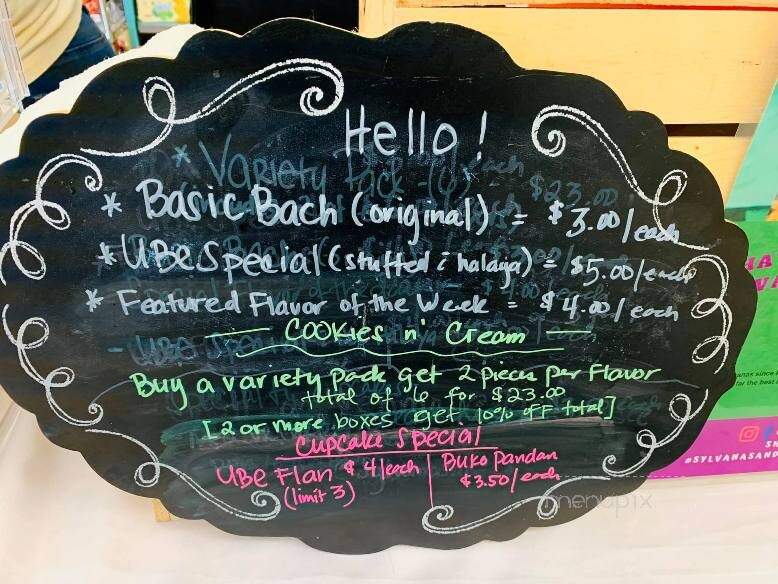 Hello!
* Basic Bach (original) = $3.00/each
* UBE Special (stuffed i halaya) = $5.00/each
* Featured Flavor of the Week = $4.00/each
Cookies n' Cream
Buy a variety pack get 2 pieces per Flavor
total of 6 for $23.00
[2 or more boxes get 10% off total]
Cupcake Special
UBE Flan $4/each
(limit 3)
Buko Pandan
$3.50/each
* Variety Pack (6) = $23.00
menupix
anas since
far the best
#SYLVANASAND